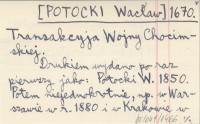 [POTOCKI Wacław] 1670.
Transakcyja Wojny Chocim-
skiej.
Drukiem wydano po raz
pierwszy jako: Potocki W. 1850.
Potem niejednokrotnie, np. w War-
szawie w r. 1880 i w Krakowie w